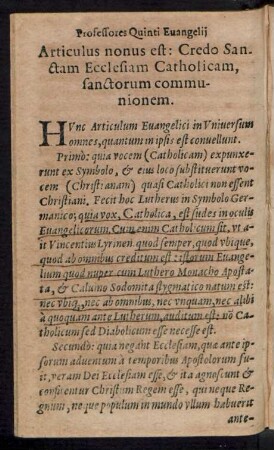 Professores Quinti Euangelij
Articulus nonus est: Credo San-
ctam Ecclesiam Catholicam,
sanctorum commu-
nionem.
HVnc Articulum Euangelici in Vniuersum
omnes, quantum in ipsis est conuellunt.
Primò: quia vocem (Catholicam) expunxe-
runt ex Symbolo, & eius loco substituerunt vo-
cem (Christianam) quasi Catholici non essent
Christiani. Fecit hoc Lutherus in Symbolo Ger-
manico, quia vox, Catholica, est sudes in oculis
Euangelicorum. Cum enim Catholicum sit, vt a-
it Vincentius Lyrinen. quod semper, quod vbique,
quod ab omnibus creditum est: istorum Euange-
lium quod nuper cum Luthero Monacho Aposta-
ta, & Caluino Sodomita stygmatico natum est:
nec vbiq;, nec ab omnibus, nec vnquam, nec alibi
à quoquam ante Lutherum, auditum est: nõ Ca-
tholicum sed Diabolicum esse necesse est.
Secundò: quia negant Ecclesiam, quæ ante ip-
sorum aduentum à temporibus Apostolorum fu-
it, veram Dei Ecclesiam esse, & ita agnoscunt &
confitentur Christum Regem esse, qui neque Re-
gnum, neque populum in mundo vllum habuerit
ante-